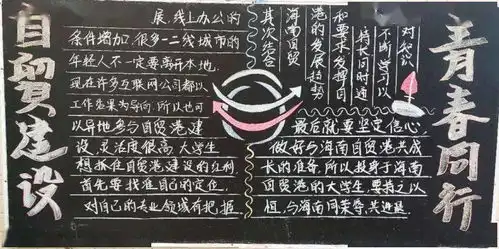 自贸建设
展、线上办公的
条件增加,很多一二线城市的
年轻人不一定要离开本地
现在许多互联网公司都以
工作结果为导向,所以也可
以异地参与自贸港建
设,灵活度很高大学生
想抓住自贸港建设的红利
首先要找准自己的定位,
对自己的专业领域有把握
其次结合
海南自贸
港的发展趋势
和要求发挥自
特长同时通
不断学习以
对
最后就要坚定信心
做好与海南自贸港共成
长的准备,所以投身于海南
自贸港的大学生,要持之以
恒,与海南同荣辱、共进退
青春同行